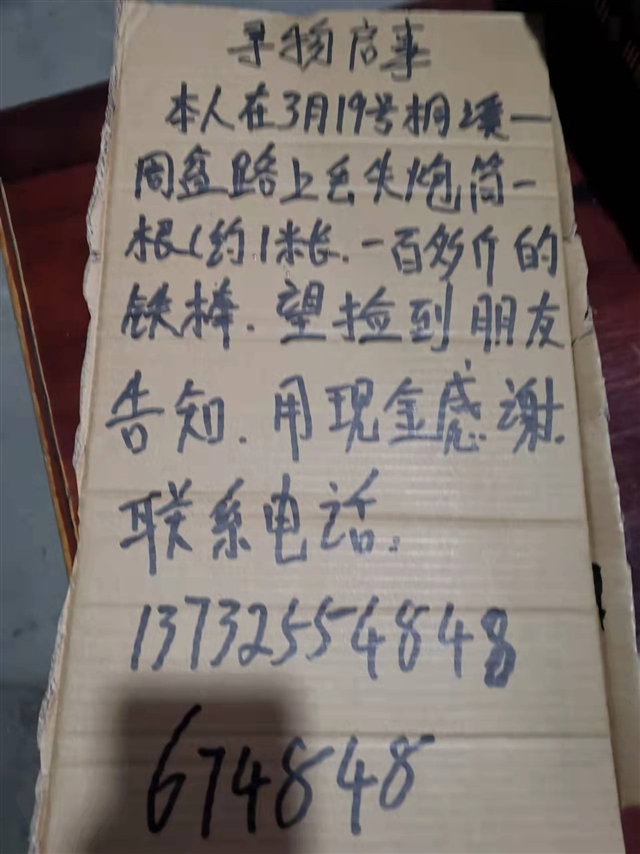 寻物启事
本人在3月19号桐溪一
周盆路上丢失炮筒一
根(约1米长.一百多斤的
铁棒.望捡到朋友
告知.用现金感谢.
联系电话.
13732554848
674848